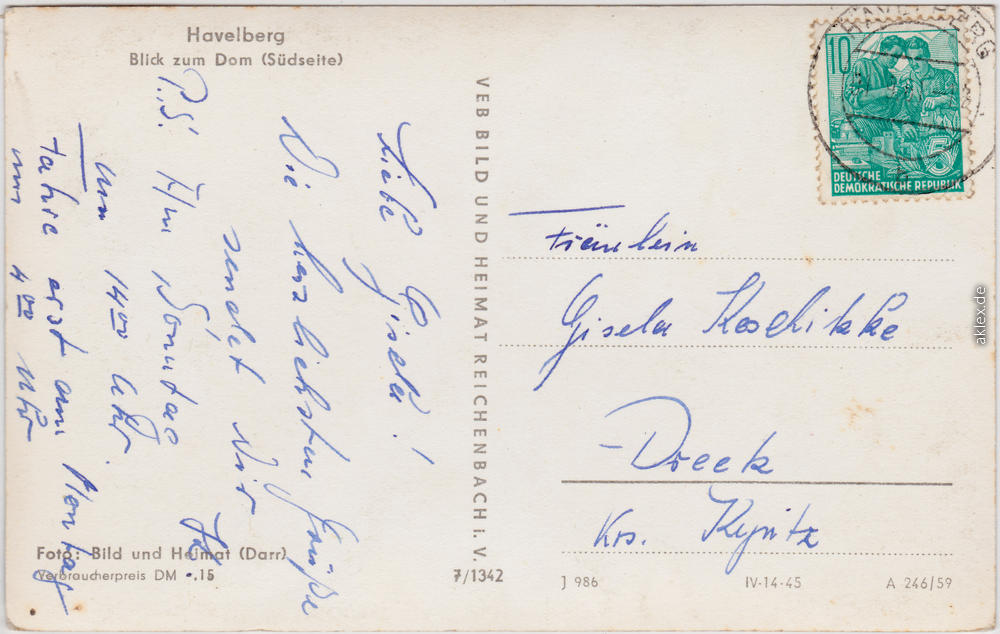 Havelberg
Blick zum Dom (Südseite)
Liebe Gisela!
Die herzlichsten Grüße
sendet Dir
P.S. Am Sonntag
um 1400 Uhr.
fahre erst am Montag
um 400 Uhr
Foto: Bild und Heimat (Darr)
Verbraucherpreis DM -.15
VEB BILD UND HEIMAT REICHENBACH i. V.
7/1342
HAVELBERG
10
5
DEUTSCHE
DEMOKRATISCHE REPUBLIK
Fräulein
Gisela Koschitzke
Dreetz
Krs. Kyritz
J 986
IV-14-45
A 246/59
aklex.de